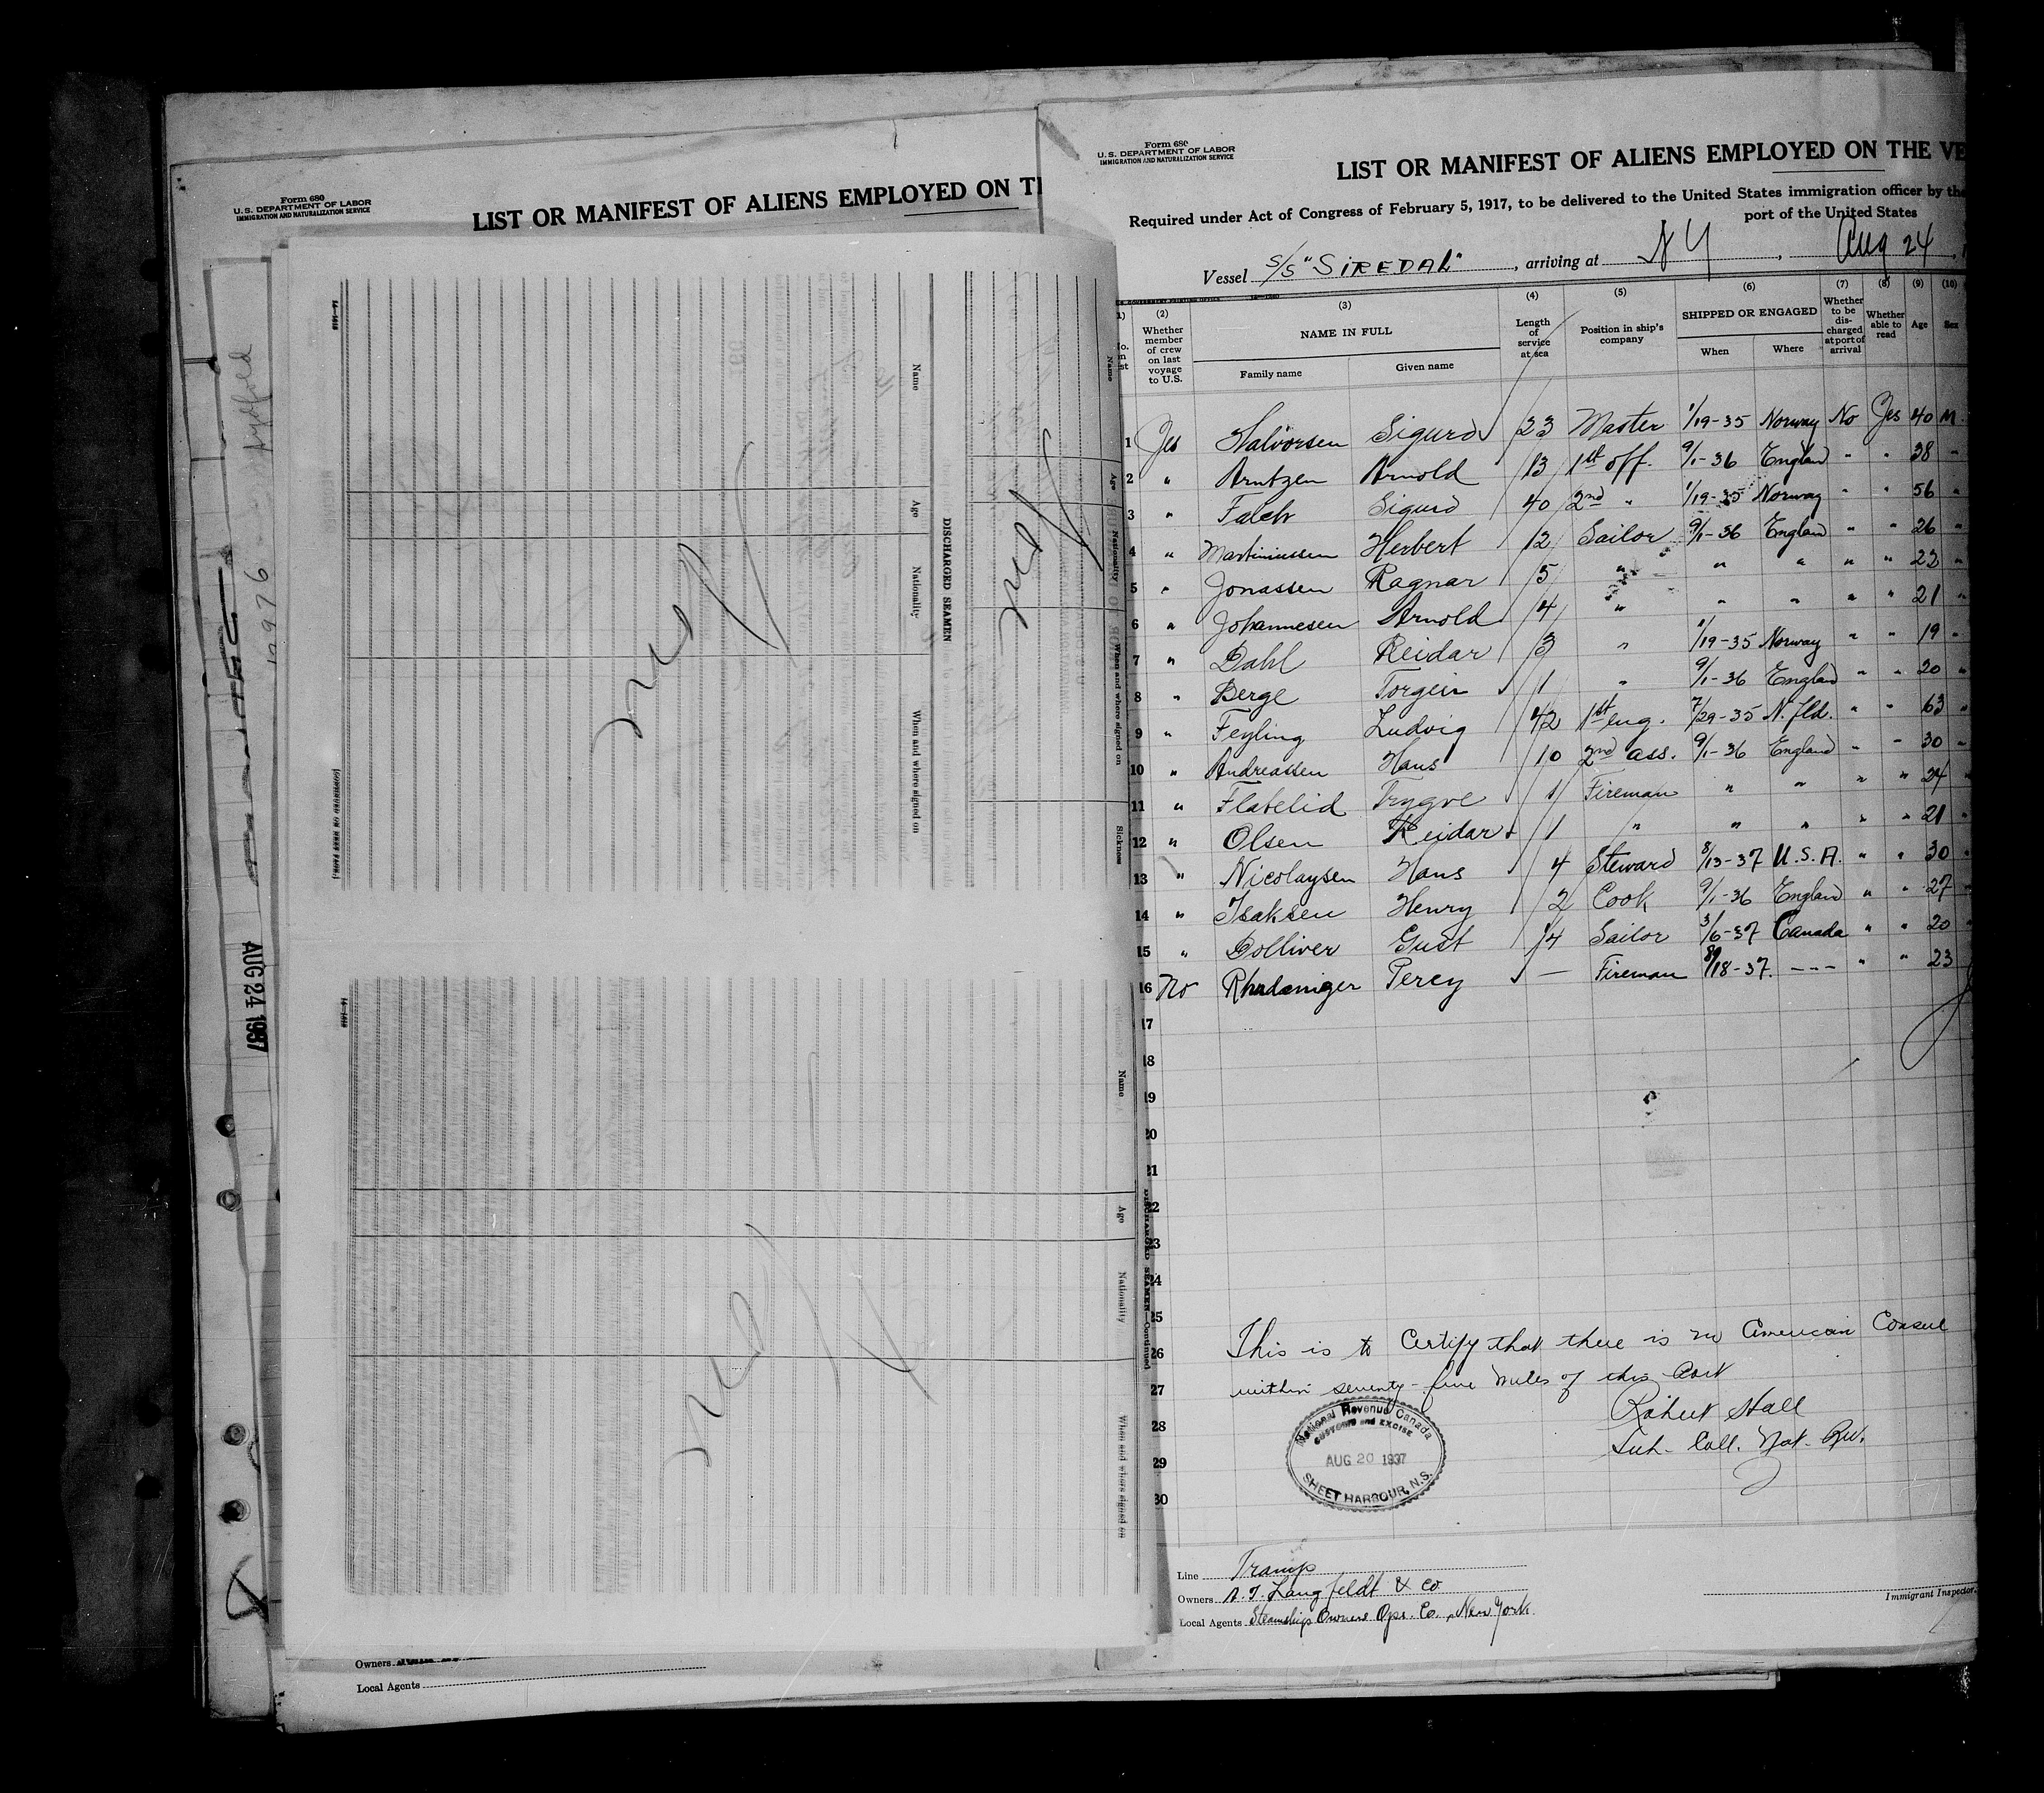 Form 680
U. S. DEPARTMENT OF LABOR
IMMIGRATION AND NATURALIZATION SERVICE
LIST OR MANIFEST OF ALIENS EMPLOYED ON TH
AUG 24 1937
10976
Name
Age
Nationality
When and where signed on
DISCHARGED SEAMEN
Name
Age
Nationality
When and where signed on
Sickness
Name
Age
Nationality
When and where signed on
DISCHARGED SEAMEN—Continued
Owners
Local Agents
Form 680
U. S. DEPARTMENT OF LABOR
IMMIGRATION AND NATURALIZATION SERVICE
LIST OR MANIFEST OF ALIENS EMPLOYED ON THE VE
Required under Act of Congress of February 5, 1917, to be delivered to the United States immigration officer by the
port of the United States
Vessel S/S "SIREDAL", arriving at N Y, Aug 24, 1
(2) (3) (4) (5) (6) (7) (8) (9) (10)
Whether member of crew on last voyage to U.S. NAME IN FULL Length of service at sea Position in ship's company SHIPPED OR ENGAGED Whether to be discharged at port of arrival Whether able to read Age Sex
Family name Given name When Where
1 Yes Halvorsen Sigurd 23 Master 1/19-35 Norway No Yes 40 M.
2 " Arntzen Arnold 13 1st off. 9/1-36 England " " 38 "
3 " Falch Sigurd 40 2nd " 1/19-35 Norway " " 56 "
4 " Martiniussen Herbert 12 Sailor 9/1-36 England " " 26 "
5 " Jonassen Ragnar 5 " " " " " 22 "
6 " Johannesen Arnold 4 " " " " " 21 "
7 " Dahl Reidar 3 " 1/19-35 Norway " " 19 "
8 " Berge Torgeir 1 " 9/1-36 England " " 20 "
9 " Feyling Ludvig 42 1st eng. 7/29-35 N. fld. " " 63 "
10 " Andreassen Hans 10 2nd ass. 9/1-36 England " " 30 "
11 " Flatelid Trygve 1 Fireman " " " " 24 "
12 " Olsen Reidar 1 " " " " " 21 "
13 " Nicolaysen Hans 4 Steward 8/13-37 U.S.A. " " 30 "
14 " Isaksen Henry 2 Cook 9/1-36 England " " 27 "
15 " Bolliver Gust 4 Sailor 3/6-37 Canada " " 20 "
16 No Percy — Fireman 8/18-37. --- " " 23
17
18
19
20
21
22
23
24
25
26 This is to Certify that there is no American Consul
27 within seventy-five miles of this Port
28 Robert Hall
29 Sub. Coll. Nat. Rev.
30
National Revenue Canada
CUSTOMS and EXCISE
AUG 20 1937
SHEET HARBOUR, N.S.
Line Tramp
Owners A. T. Langfeldt & Co
Local Agents Steamships Owners Opr. Co., New York.
Immigrant Inspector.